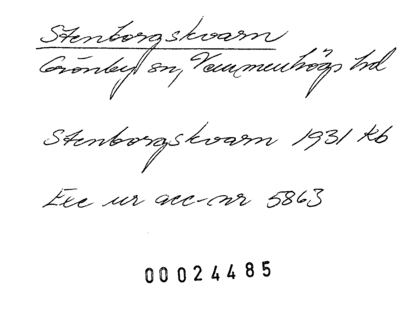 Stenborgskvarn
Grönby sn, Vemmenhögs hd
Stenborgskvarn 1931 Kb
Exc ur acc-nr 5863
00024485